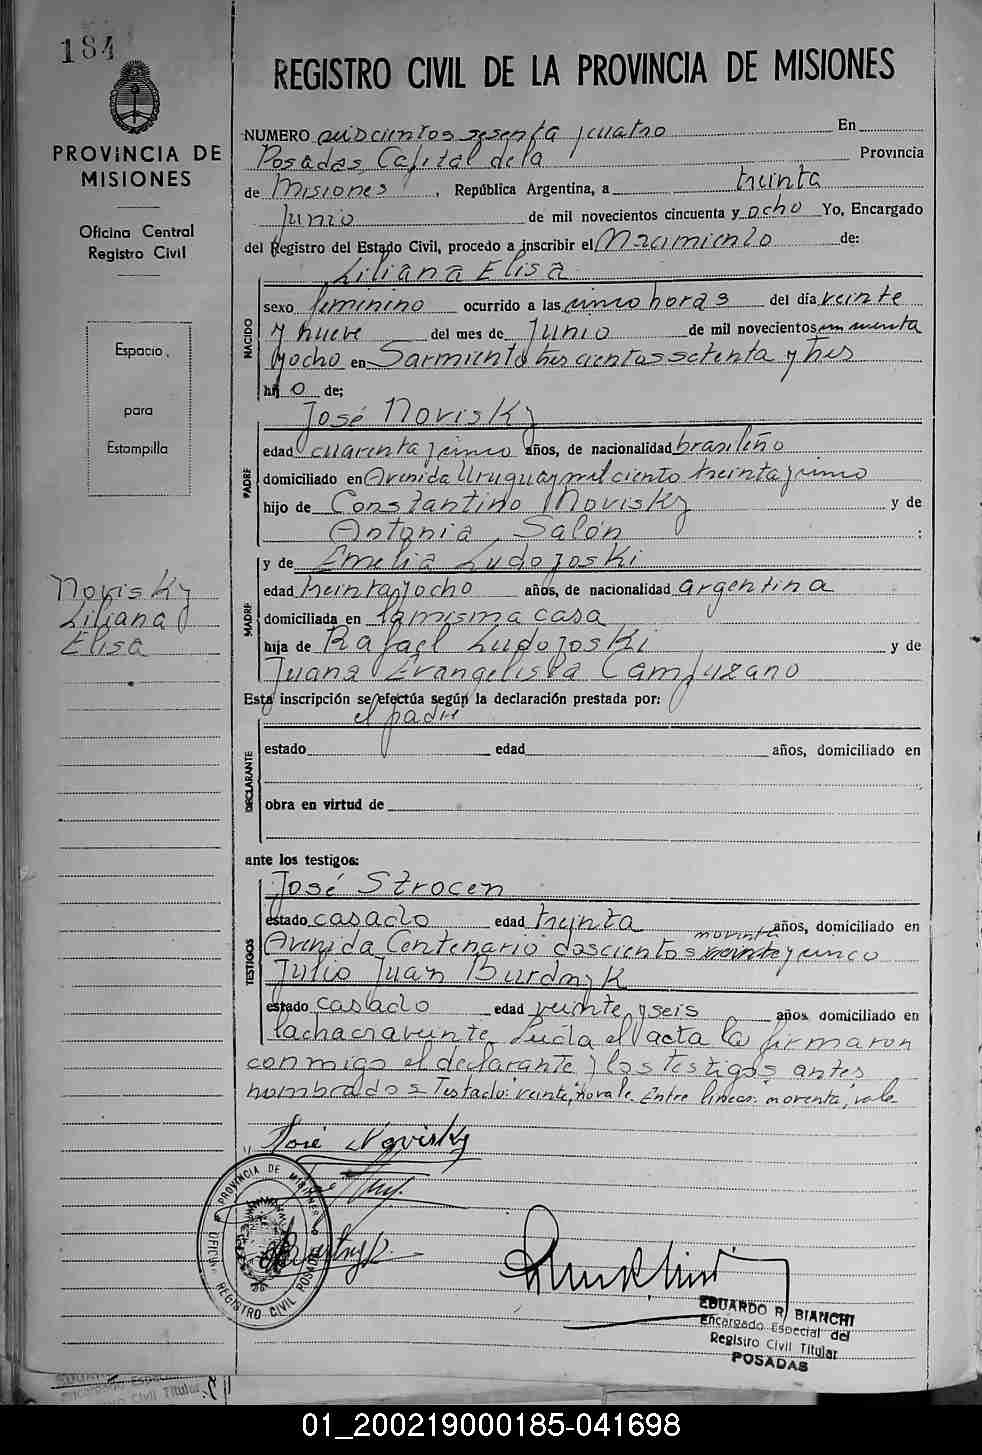 184
REGISTRO CIVIL DE LA PROVINCIA DE MISIONES
PROVINCIA DE
MISIONES
Oficina Central
Registro Civil
Espacio
para
Estampilla
Novisky
Liliana
Elisa
NUMERO seiscientos sesenta y cuatro En
Posadas, Capital de la Provincia
de Misiones, República Argentina, a treinta
Junio de mil novecientos cincuenta y ocho Yo, Encargado
del Registro del Estado Civil, procedo a inscribir el Nacimiento de:
Liliana Elisa
NACIDO
sexo femenino ocurrido a las cinco horas del día veinte
y nueve del mes de Junio de mil novecientos cincuenta
y ocho en Sarmiento trescientos setenta y tres
hijo de;
José Novisky
PADRE
edad cuarenta y cinco años, de nacionalidad brasileño
domiciliado en Avenida Uruguay mil ciento treinta y cinco
hijo de Constantino Novisky y de
Antonia Salón ;
y de Emelia Ludojoski
MADRE
edad treinta y ocho años, de nacionalidad argentina
domiciliada en la misma casa
hija de Rafael Ludojoski y de
Juana Evangelista Campuzano
Esta inscripción se efectúa según la declaración prestada por:
el padre
DECLARANTE
estado edad años, domiciliado en
obra en virtud de
ante los testigos:
José Strocen
TESTIGOS
estado casado edad treinta años, domiciliado en
noventa
Avenida Centenario doscientos veinte y cinco
Julio Juan Burdnyk
estado casado edad veinte y seis años. domiciliado en
la chacra veinte. Leida el acta la firmaron
conmigo el declarante y los testigos antes
nombrados = Testado: veinte, no vale. Entre lineas: noventa, vale
José Novisky
PROVINCIA DE MISIONES
OFICINA REGISTRO CIVIL POSADAS
EDUARDO R. BIANCHI
Encargado Especial del
Registro Civil Titular
POSADAS
01_200219000185-041698